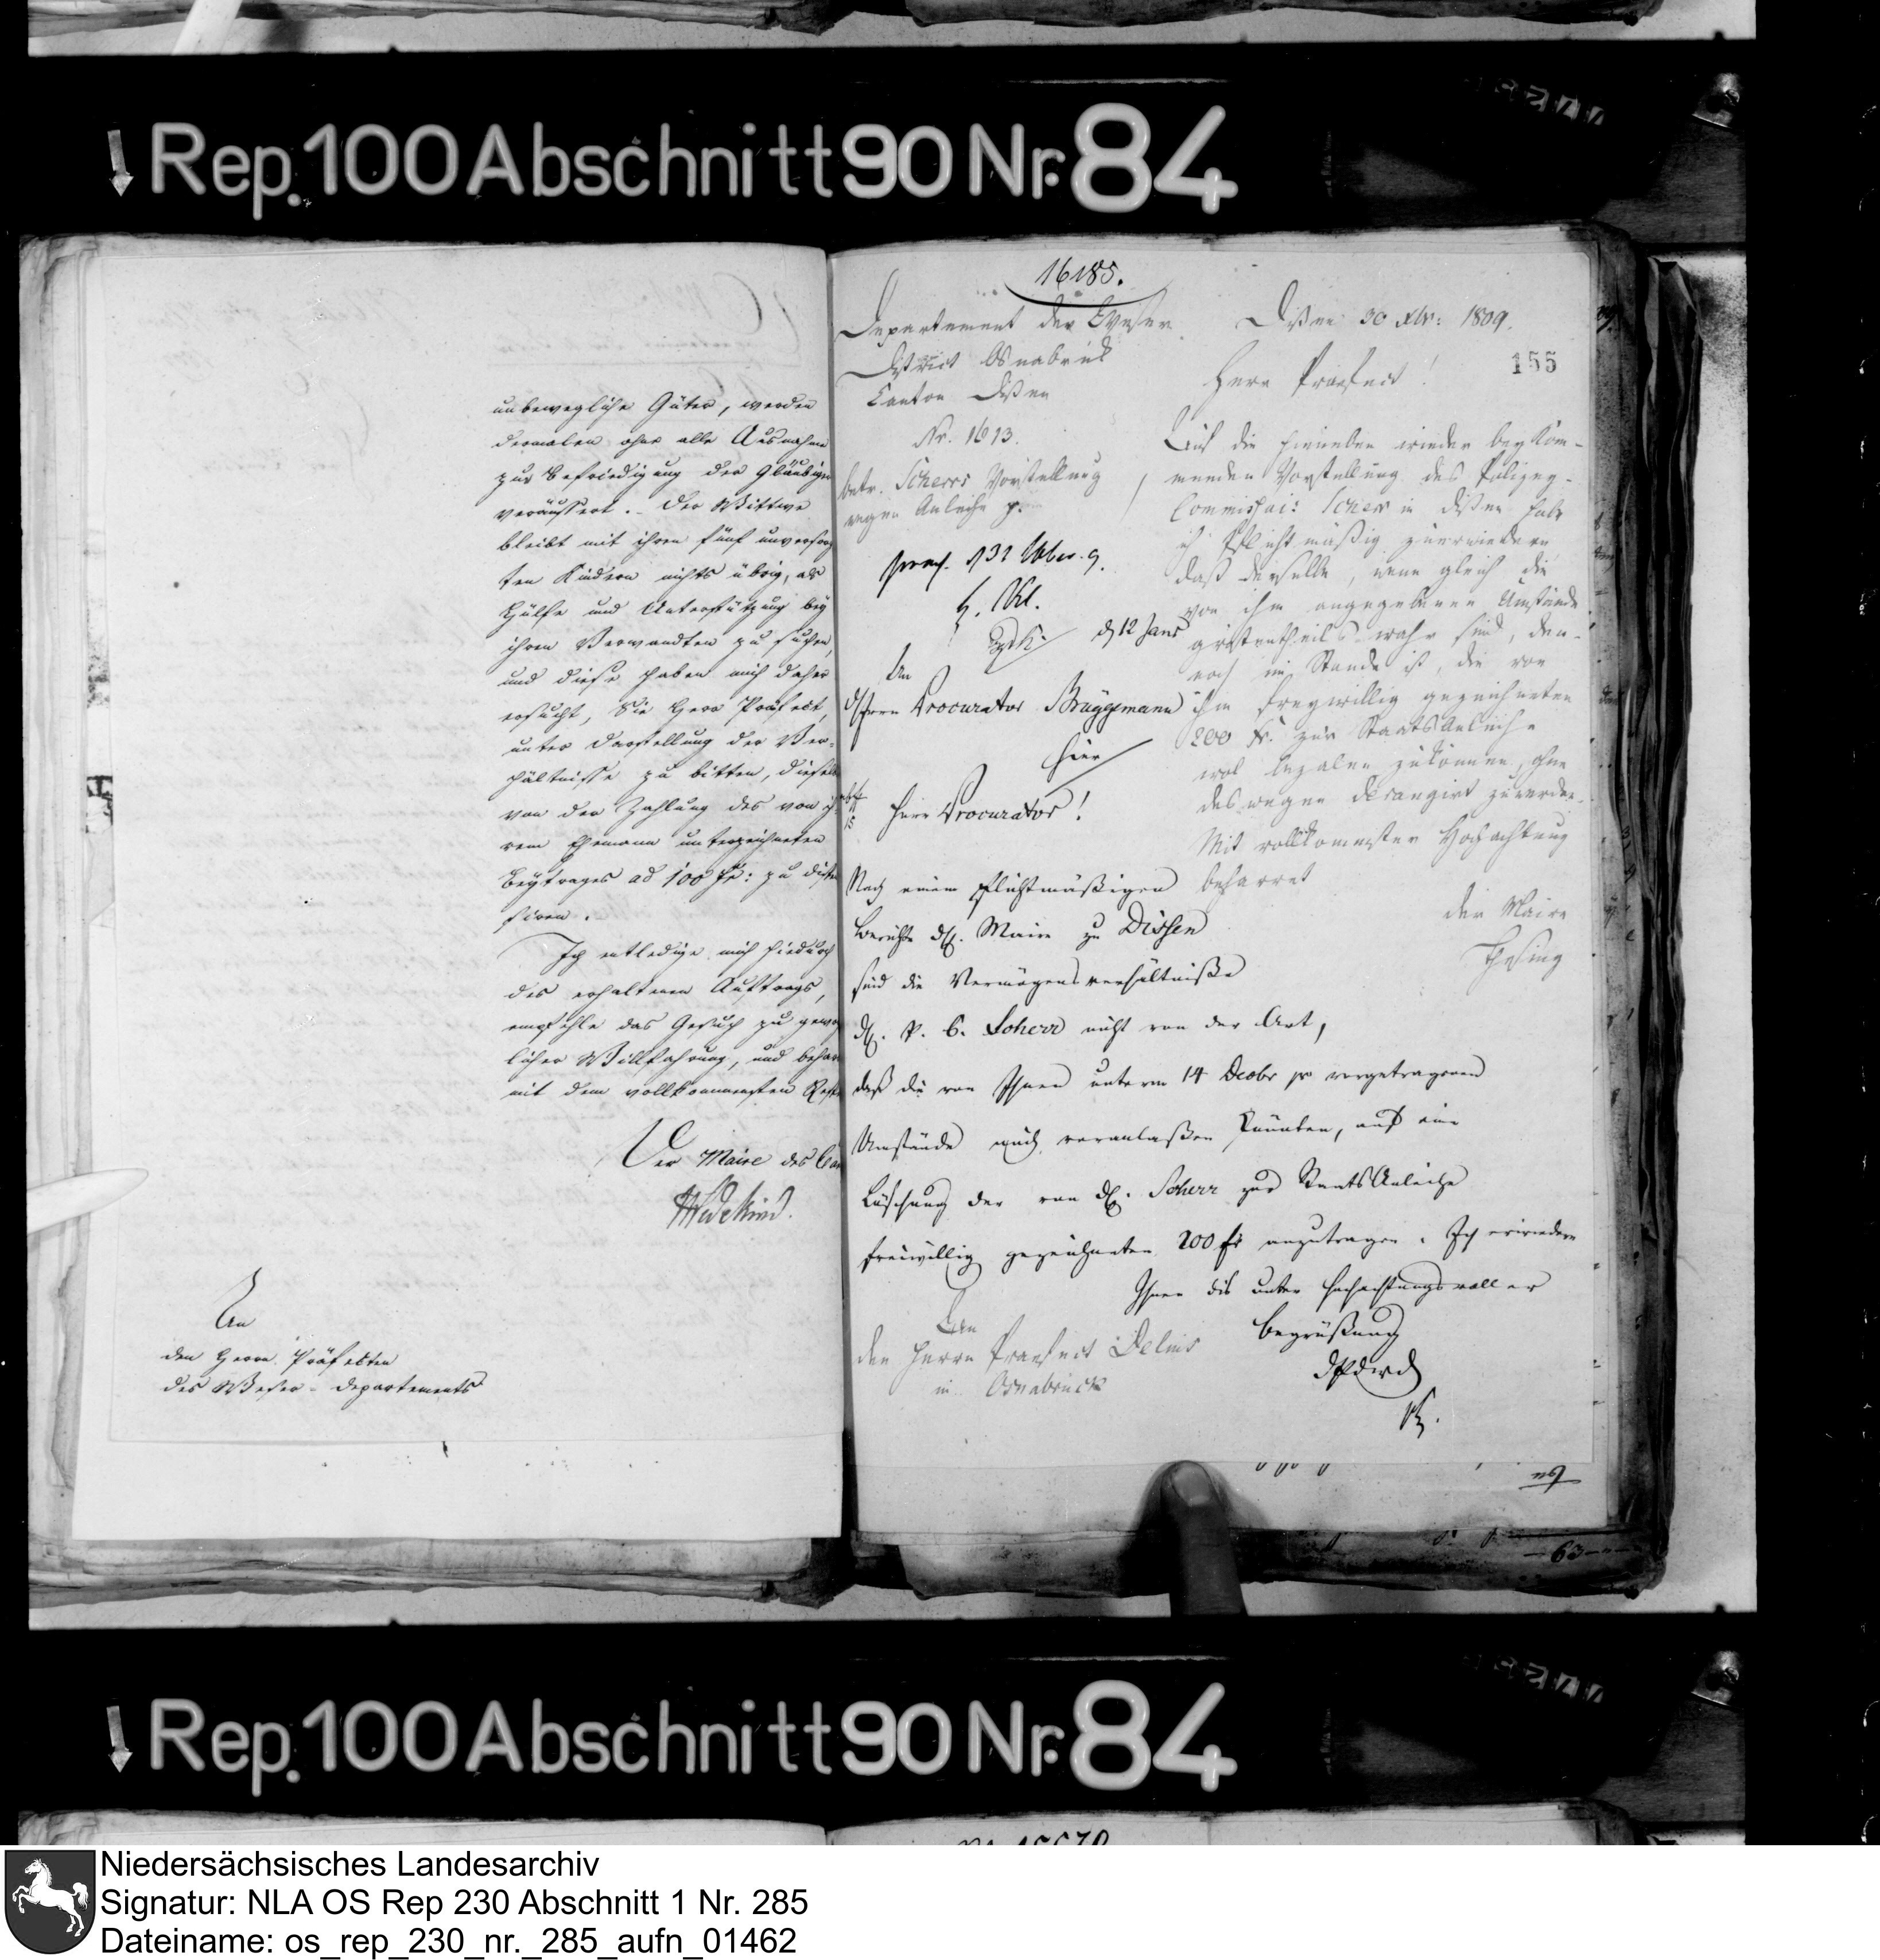 Rep. 100 Abschnitt 90 Nr. 84
unbewegliche Güter, werden
dermalen ohne alle Ausnahme
zur Befriedigung der Gläubiger
veräussert. Der Wittwe
bleibt mit ihren fünf unversorg
ten Kindern nichts übrig, als
Hülfe und Unterstützung bey
ihren Verwandten zu suchen,
und diese haben mich daher
ersucht, Sie Herr Präfekt,
unter Darstellung der Ver-
hältnisse zu bitten, dieselbe
von der Zahlung des von ih-
rem Ehemann unterzeichneten
Beytrages ad 100 fr: zu dispen
siren.
Ich entledige mich hiedurch
des erhaltenen Auftrags,
empfehle das Gesuch zu gewog
licher Willfahrung, und behar
mit dem vollkommensten Resp
Der Maire des Can
Wedekind.
An
den Herrn Präfekten
des Weser-Departements
16185.
Departement der Weser
District Osnabrück
Canton Dissen
Nr. 1613.
betr. Scherrs Vorstellung
wegen Anleihe p.
Dissen 30 Xbr: 1809.
155
Herr Praefect!
Auf die hieneben wieder beykom-
menden Vorstellung des Polizey-
Commissai: Scherr in Dissen habe
ich Pflichtmäßig zu erwiedern
daß derselbe, wenn gleich die
von ihm angegebenen Umstände
größtentheils wahr sind, den-
noch im Stande ist, die von
ihm freywillig gezeichneten
200 fr. zur Staats Anleihe
wol bezalen zu können, ohne
deswegen derangirt zu werden.
Mit vollkomenster Hochachtung
beharret
der Maire
Thesing
praes. d 31 Xbr. 9.
d 12 Janr
An
d Herrn Procurator Brüggemann
hier
Herr Procurator!
Nach einem pflichtmäßigen
Berichte des H. Maire zu Dissen
sind die Vermögensverhältniße
des H. P. C. Scherr nicht von der Art,
daß die von Ihnen unterm 14 Decbr pr vorgetragenen
Umstände mich veranlaßen könnten, auf eine
Löschung der von H. Scherr zur Staats Anleihe
freiwillig gezeichneten 200 fr anzutragen. Ich erwiedere
Ihnen dis unter hochachtungsvoller
Begrüßung
An
den Herrn Praefect Delius
in Osnabrück
63
Rep. 100 Abschnitt 90 Nr. 84
Niedersächsisches Landesarchiv
Signatur: NLA OS Rep 230 Abschnitt 1 Nr. 285
Dateiname: os_rep_230_nr._285_aufn_01462